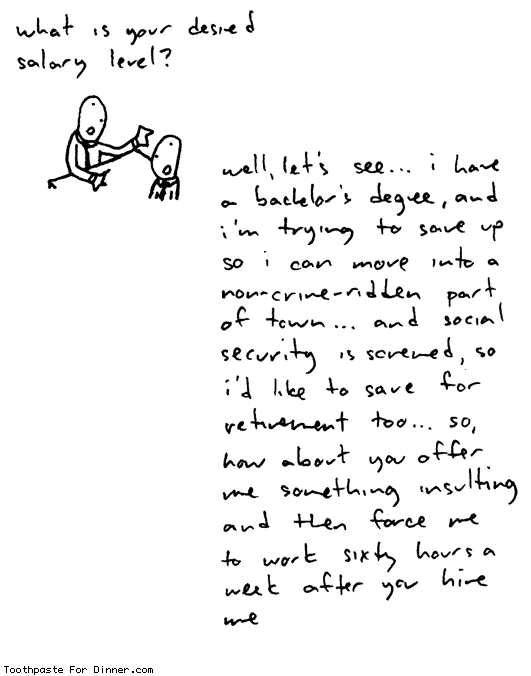 what is your desired
salary level?
well, let's see... i have
a bachelor's degree, and
i'm trying to save up
so i can move into a
non-crime-ridden part
of town... and social
security is screwed, so
i'd like to save for
retirement too... so,
how about you offer
me something insulting
and then force me
to work sixty hours a
week after you hire
me
Toothpaste For Dinner.com